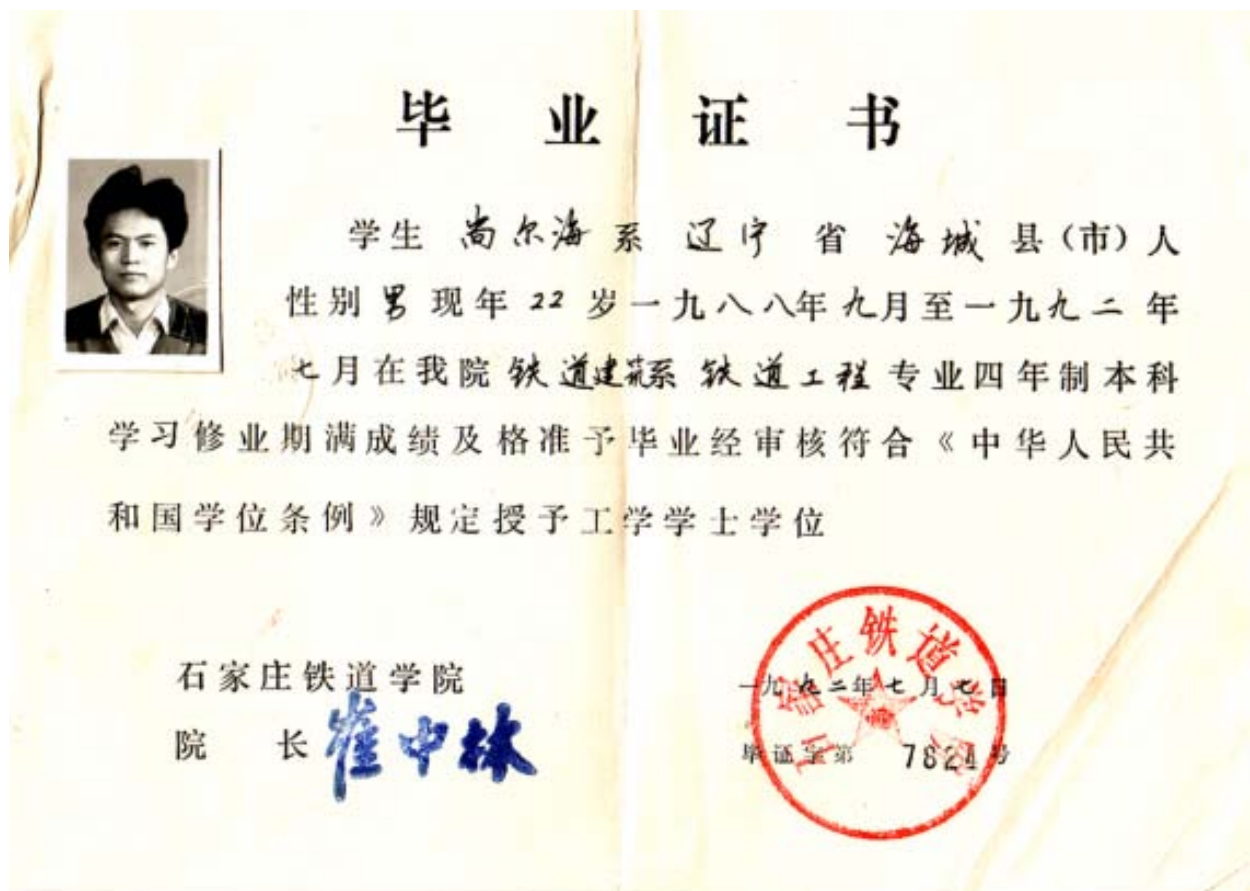 毕业证书
学生 尚尔海 系 辽宁 省 海城 县（市）人
性别 男 现年 22 岁一九八八年九月至一九九二年
七月在我院 铁道建筑系 铁道工程 专业四年制本科
学习修业期满成绩及格准予毕业经审核符合《中华人民共
和国学位条例》规定授予工学学士学位
石家庄铁道学院
院长 崔中林
一九九二年七月七日
毕证字第 7824 号
石家庄铁道学院